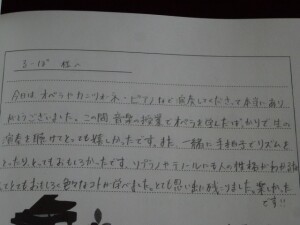 今日は、オペラやカンツォーネ・ピアノなど演奏してくださって本当にあり
がとうございました。この間 音楽の授業でオペラを学んだばかりで生の
演奏を聴けてとっても嬉しかったです。また、一緒に手をたたいてリズムを
とったり、とってもおもしろかったです。ソプラノやテノールにも人の性格がわかれ
てとてもおもしろく色々なコトが学べました。とても思い出に残りました。楽しかった
です!!